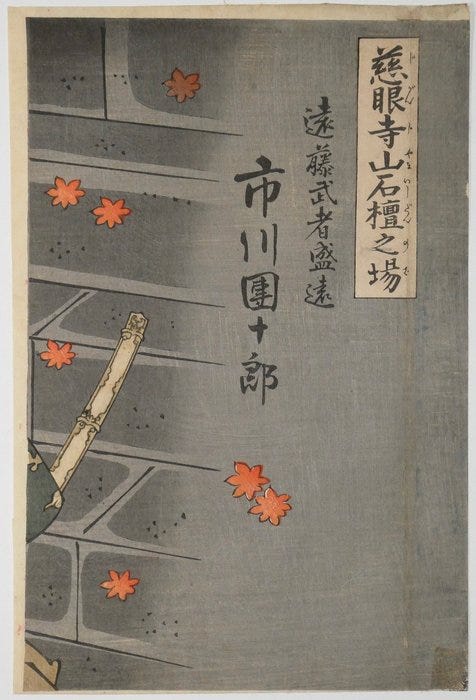 慈眼寺山石檀之場
遠藤武者盛遠
市川團十郎